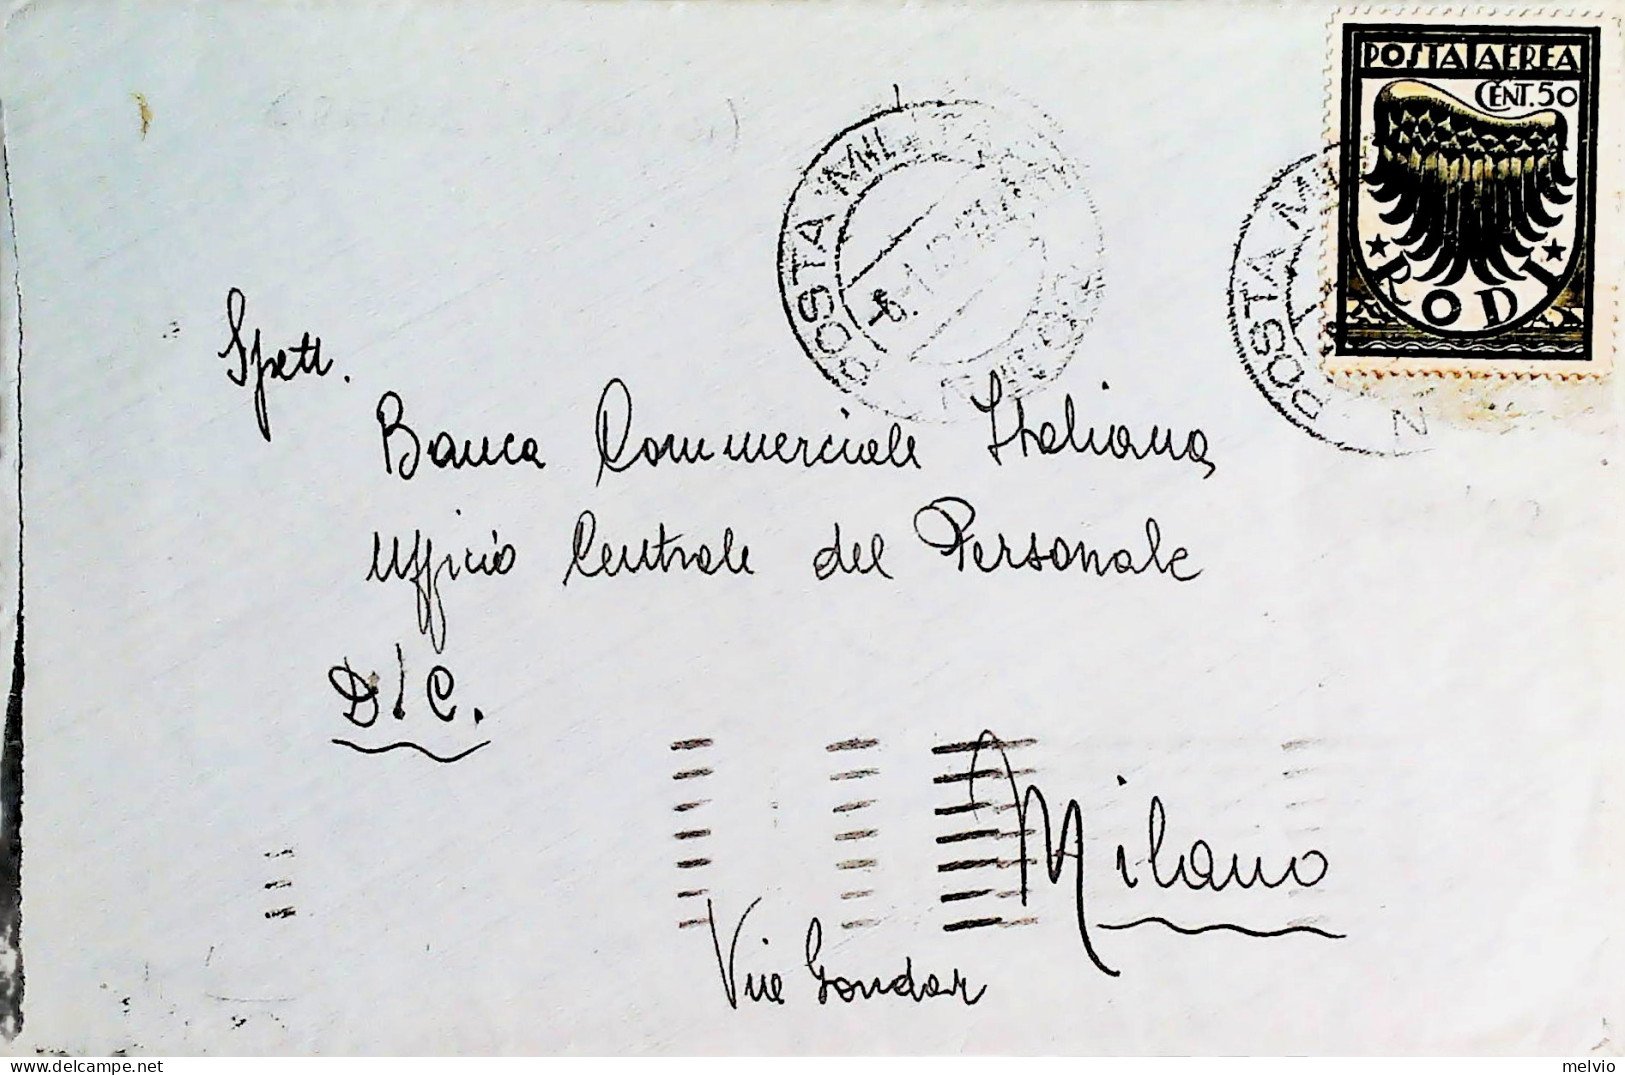 POSTA AEREA
CENT. 50
RODI
POSTA MIL
POSTA M
N
Spett.
Banca Commerciale Italiana
Ufficio Centrale del Personale
D.C.
Milano
Via Gondar
melvio